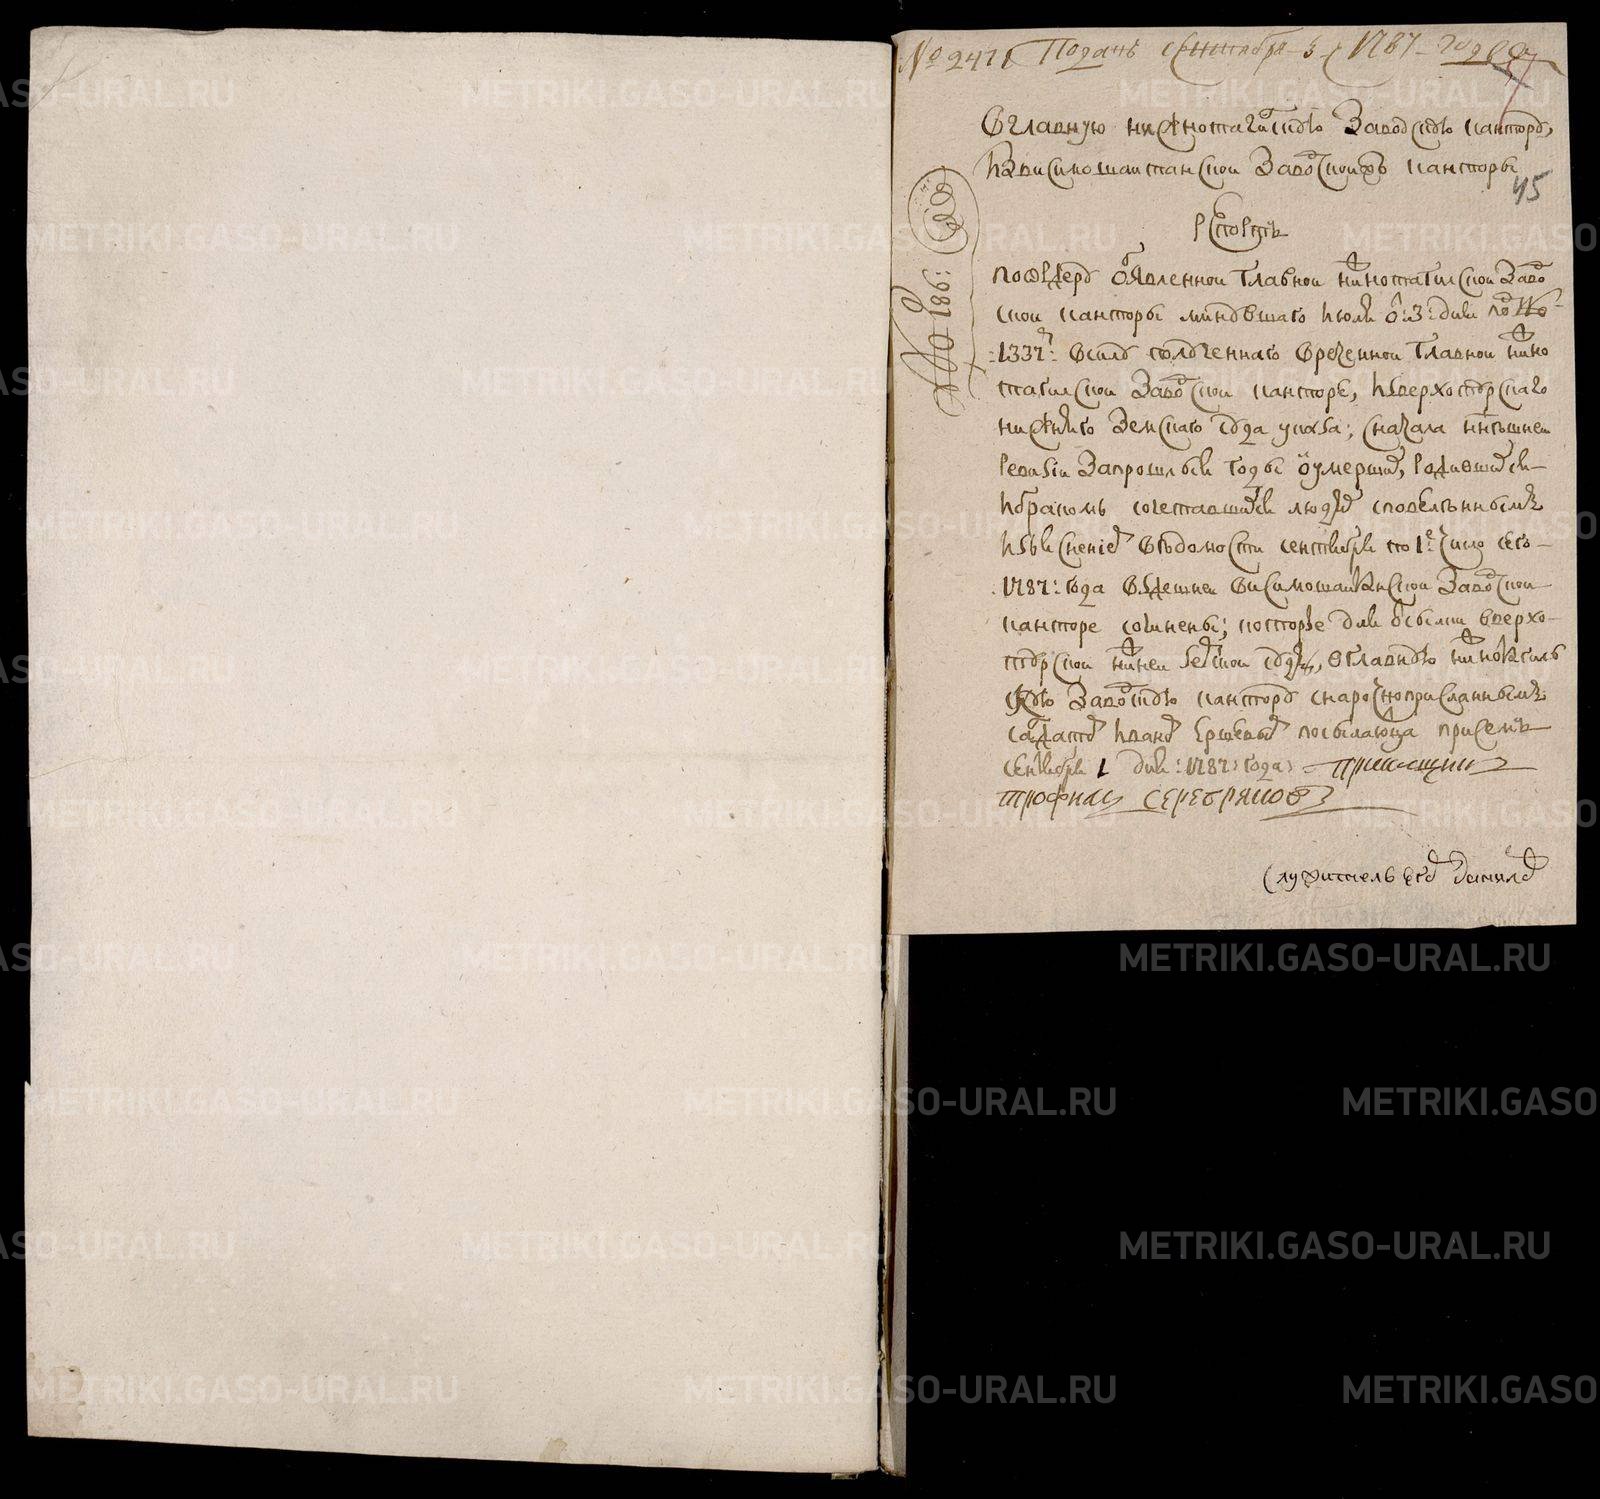 № 2471 Поданъ сентября 3 ч 1787 года
Въ главную нижнотагилскую заводскую кантору,
изъ висимошайтанской заводской канторы
45
репортъ
№ 981:
по ордеру объявленной главной нижнотагилской заво
ской канторы минувшаго июля от: 3: дня под №
:1337: в силу полученнаго в реченной главной нижно
тагилской завоцкой канторе, из верхотурскаго
нижняго земскаго суда указа; с начала нынешней
ревизии за прошлыя годы о умерших, родившихся
и браком сочетавшихся людях с повеленным
изъяснением ведомости сентября по 1е число сего
1787: года в здешней висимошайтанской завоцкой
канторе сочинены; которые для отсылки в верхо
турской нижней земской суд, в главную нижнотагиль
скую завоцкую кантору с нарочно присланным
салдатом иваном ершовым посылаютца при семъ
сентября 1 дня: 1787: года: приказщикъ
трофим серебряковъ
служитель